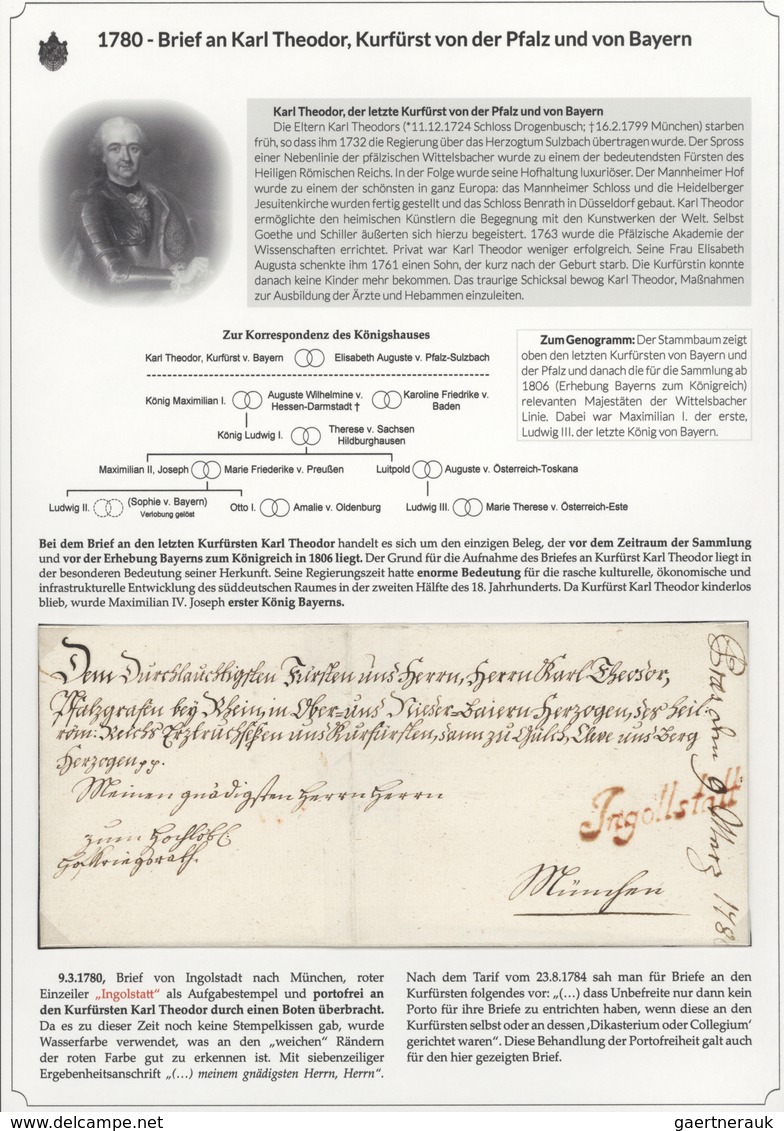 1780 - Brief an Karl Theodor, Kurfürst von der Pfalz und von Bayern
Karl Theodor, der letzte Kurfürst von der Pfalz und von Bayern
Die Eltern Karl Theodors (*11.12.1724 Schloss Drogenbusch; †16.2.1799 München) starben
früh, so dass ihm 1732 die Regierung über das Herzogtum Sulzbach übertragen wurde. Der Spross
einer Nebenlinie der pfälzischen Wittelsbacher wurde zu einem der bedeutendsten Fürsten des
Heiligen Römischen Reichs. In der Folge wurde seine Hofhaltung luxuriöser. Der Mannheimer Hof
wurde zu einem der schönsten in ganz Europa: das Mannheimer Schloss und die Heidelberger
Jesuitenkirche wurden fertig gestellt und das Schloss Benrath in Düsseldorf gebaut. Karl Theodor
ermöglichte den heimischen Künstlern die Begegnung mit den Kunstwerken der Welt. Selbst
Goethe und Schiller äußerten sich hierzu begeistert. 1763 wurde die Pfälzische Akademie der
Wissenschaften errichtet. Privat war Karl Theodor weniger erfolgreich. Seine Frau Elisabeth
Augusta schenkte ihm 1761 einen Sohn, der kurz nach der Geburt starb. Die Kurfürstin konnte
danach keine Kinder mehr bekommen. Das traurige Schicksal bewog Karl Theodor, Maßnahmen
zur Ausbildung der Ärzte und Hebammen einzuleiten.
Zur Korrespondenz des Königshauses
Karl Theodor, Kurfürst v. Bayern Elisabeth Auguste v. Pfalz-Sulzbach
König Maximilian I. Auguste Wilhelmine v. Karoline Friedrike v.
Hessen-Darmstadt † Baden
König Ludwig I. Therese v. Sachsen
Hildburghausen
Maximilian II, Joseph Marie Friederike v. Preußen Luitpold Auguste v. Österreich-Toskana
Ludwig II. (Sophie v. Bayern) Otto I. Amalie v. Oldenburg Ludwig III. Marie Therese v. Österreich-Este
Verlobung gelöst
Zum Genogramm: Der Stammbaum zeigt
oben den letzten Kurfürsten von Bayern und
der Pfalz und danach die für die Sammlung ab
1806 (Erhebung Bayerns zum Königreich)
relevanten Majestäten der Wittelsbacher
Linie. Dabei war Maximilian I. der erste,
Ludwig III. der letzte König von Bayern.
Bei dem Brief an den letzten Kurfürsten Karl Theodor handelt es sich um den einzigen Beleg, der vor dem Zeitraum der Sammlung
und vor der Erhebung Bayerns zum Königreich in 1806 liegt. Der Grund für die Aufnahme des Briefes an Kurfürst Karl Theodor liegt in
der besonderen Bedeutung seiner Herkunft. Seine Regierungszeit hatte enorme Bedeutung für die rasche kulturelle, ökonomische und
infrastrukturelle Entwicklung des süddeutschen Raumes in der zweiten Hälfte des 18. Jahrhunderts. Da Kurfürst Karl Theodor kinderlos
blieb, wurde Maximilian IV. Joseph erster König Bayerns.
Dem Durchlauchtigsten Fürsten und Herrn, Herrn Karl Theodor,
Pfalzgrafen bey Rhein, in Ober- und Nieder-Baiern Herzogen, des heil:
röm: Reichs Erztruchseßen und Kurfürsten, dann zu Gülch, Cleve und Berg
Herzogen pp.
Meinen gnädigsten Herrn Herrn
Zum Hochlöbl:
Hofkriegsrath.
München
Ingolstatt
den 9 Merz 178
9.3.1780, Brief von Ingolstadt nach München, roter
Einzeiler „Ingolstatt“ als Aufgabestempel und portofrei an
den Kurfürsten Karl Theodor durch einen Boten überbracht.
Da es zu dieser Zeit noch keine Stempelkissen gab, wurde
Wasserfarbe verwendet, was an den „weichen“ Rändern
der roten Farbe gut zu erkennen ist. Mit siebenzeiliger
Ergebenheitsanschrift „(...) meinem gnädigsten Herrn, Herrn“.
Nach dem Tarif vom 23.8.1784 sah man für Briefe an den
Kurfürsten folgendes vor: „(...) dass Unbefreite nur dann kein
Porto für ihre Briefe zu entrichten haben, wenn diese an den
Kurfürsten selbst oder an dessen ‚Dikasterium oder Collegium‘
gerichtet waren“. Diese Behandlung der Portofreiheit galt auch
für den hier gezeigten Brief.
www.delcampe.net
gaertnerauk